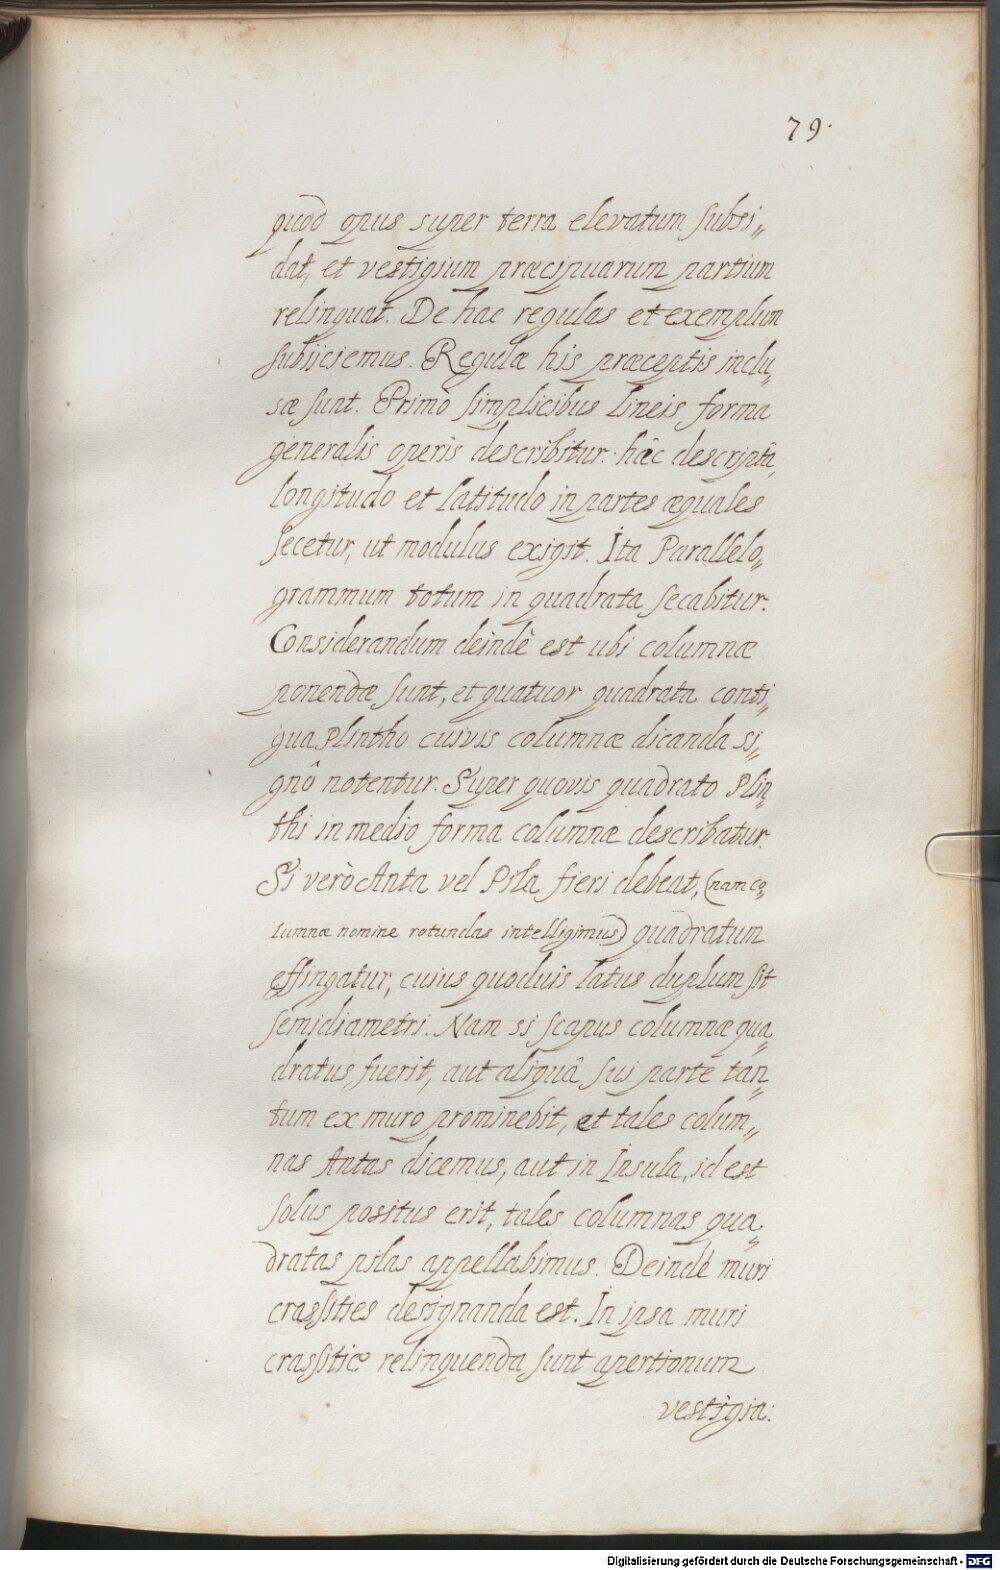 79.
quod opus super terra elevatum subsi„
dat, et vestigium præcipuarum partium
relinquat. De hac regulas et exemplum
subiiciemus. Regulæ his præceptis inclu„
sæ sunt. Primò simplicibus lineis forma
generalis operis describitur. hâc descriptâ,
longitudo et latitudo in partes æquales
secetur, ut modulus exigit. Ita Parallelo„
grammum totum in quadrata secabitur.
Considerandum deindè est ubi columnæ
ponendæ sunt, et quatuor quadrata conti„
gua Plintho cuivis columnæ dicanda si„
gnô notentur. Super quovis quadrato Plin„
thi in medio forma columnæ describatur.
Si verò Anta vel Pila fieri debeat, (nam co„
lumnæ nomine rotundas intelligimus) quadratum
effingatur, cuius quoduis latus duplum sit
semidiametri. Nam si scapus columnæ qua„
dratus, fuerit, aut aliquâ sui parte tan„
tum ex muro prominebit, et tales colum„
nas Antas dicemus, aut in Insula, id est
solus positus erit, tales columnas qua„
dratas pilas appellabimus. Deindè muri
crassities designanda est. In ipsa muri
crassitie relinquenda sunt apertionum
vestigia:
Digitalisierung gefördert durch die Deutsche Forschungsgemeinschaft - DFG